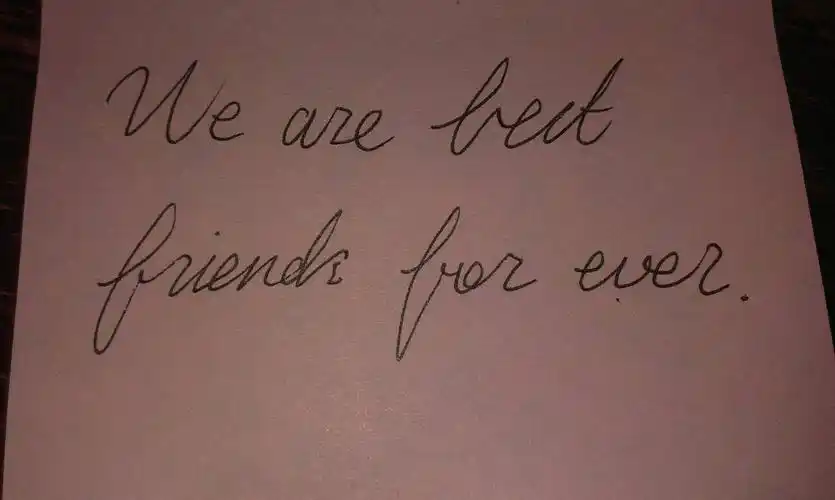 We are best
friends for ever.